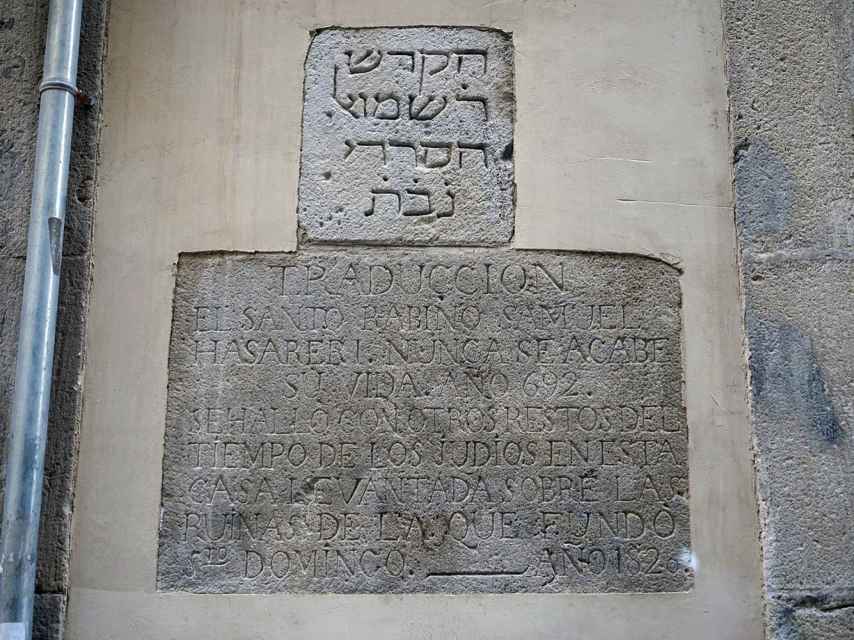 הקדש
ר שמואל
הסרדי
נבת
TRADUCCION
EL SANTO RABINO SAMUEL
HASARERI. NUNCA SE ACABE
SU VIDA. AÑO 692.
SE HALLO CON OTROS RESTOS DEL
TIEMPO DE LOS JUDIOS EN ESTA
CASA LEVANTADA SOBRE LAS
RUINAS DE LA QUE FUNDÒ
STO DOMINGO. AÑO 1826